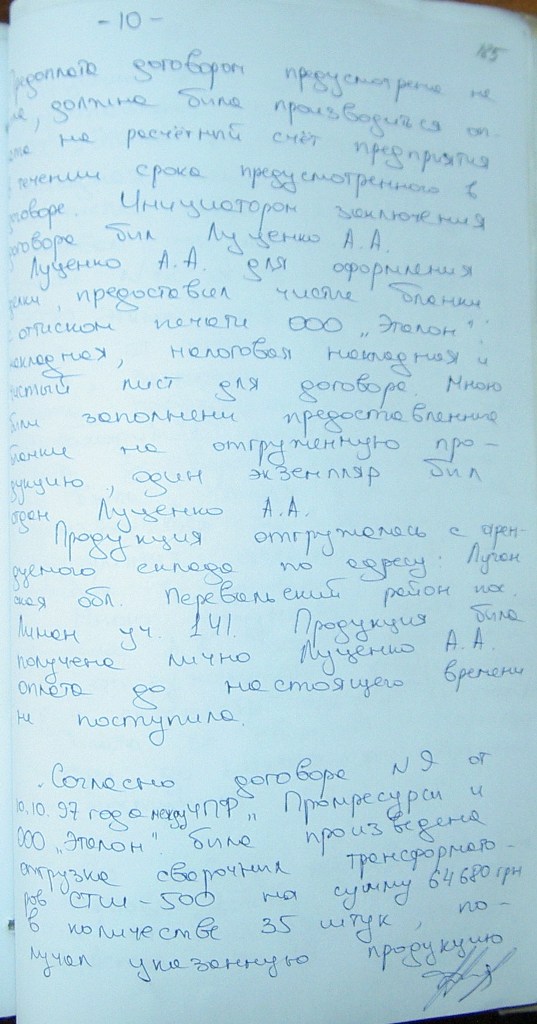 - 10 -
185
Предоплата договором предусмотрена не
была, должна была производиться оп-
лата на расчётный счёт предприятия
в течении срока предусмотренного в
договоре. Инициатором заключения
договора был Луценко А.А.
Луценко А.А. для оформления
сделки, предоставил чистые бланки
с оттиском печати ООО „Эталон":
накладная, налоговая накладная и
чистый лист для договора. Мною
были заполнены предоставленные
бланки на отгруженную про-
дукцию, один экземпляр был
отдан Луценко А.А.
Продукция отгружалась с арен-
дуемого склада по адресу: Луган
ская обл. Перевальский район пос.
Лиман уч. 141. Продукция была
получена лично Луценко А.А.
оплата до настоящего времени
не поступила.
Согласно договора N 9 от
10.10.97 года между ЧПФ „Промресурсы и
ООО „Эталон" была произведена
отгрузка сварочных трансформато-
ров СТШ-500 на сумму 64680 грн
в количестве 35 штук, по-
лучал указанную продукцию